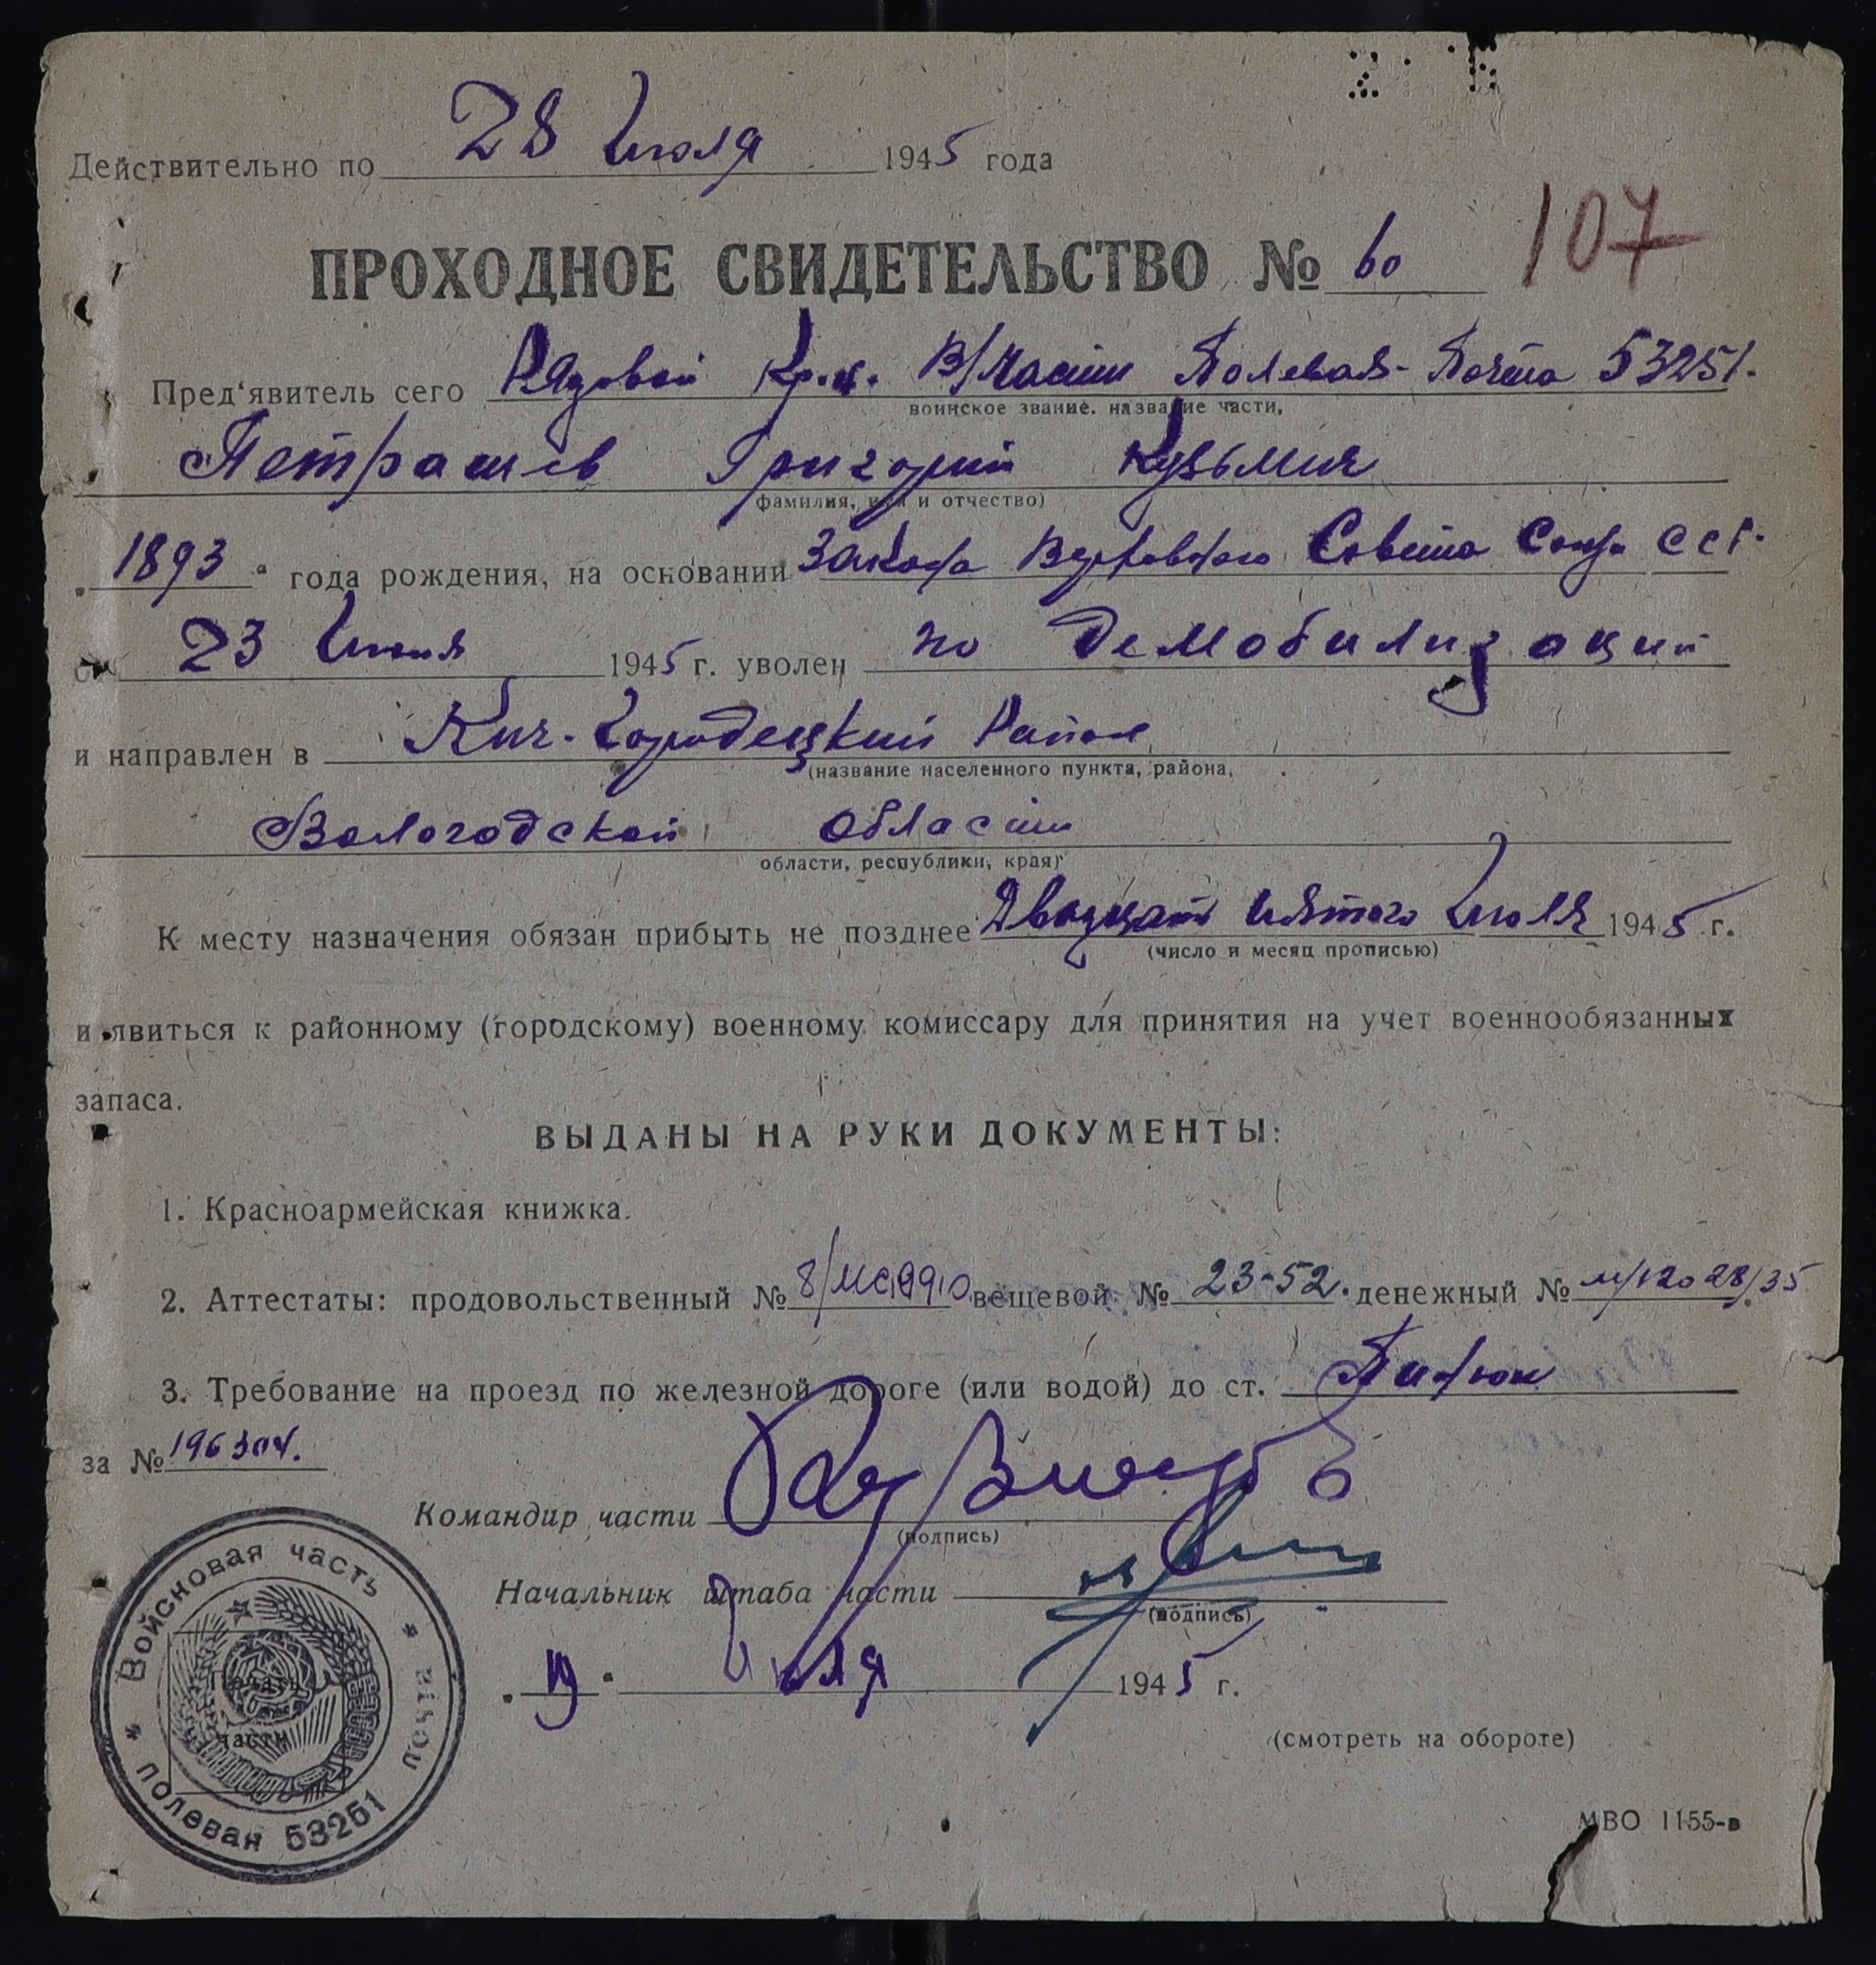 Действительно по 28 Июля 1945 года
ПРОХОДНОЕ СВИДЕТЕЛЬСТВО № 60
107
Пред'явитель сего Рядовой Кр-ц. В/Части Полевая-Почта 53251.
воинское звание. название части,
Петрашев Григорий Кузьмич
фамилия, имя и отчество)
„1893" года рождения, на основании Закона Верховного Совета Союза ССР.
от 23 Июня 1945 г. уволен по демобилизации
и направлен в Кич-Городецкий Район
(название населенного пункта, района,
Вологодской области
области, республики, края)
К месту назначения обязан прибыть не позднее Двадцать пятого Июля 1945 г.
(число и месяц прописью)
и явиться к районному (городскому) военному комиссару для принятия на учет военнообязанных
запаса.
ВЫДАНЫ НА РУКИ ДОКУМЕНТЫ:
1. Красноармейская книжка.
2. Аттестаты: продовольственный № вещевой № 23-52. денежный №
3. Требование на проезд по железной дороге (или водой) до ст.
за № 196304.
Командир части
(подпись)
Начальник штаба части
(подпись)
„19" Июля 1945 г.
(смотреть на обороте)
МВО 1155-в
Войсковая часть * полевая почта * 53251
части